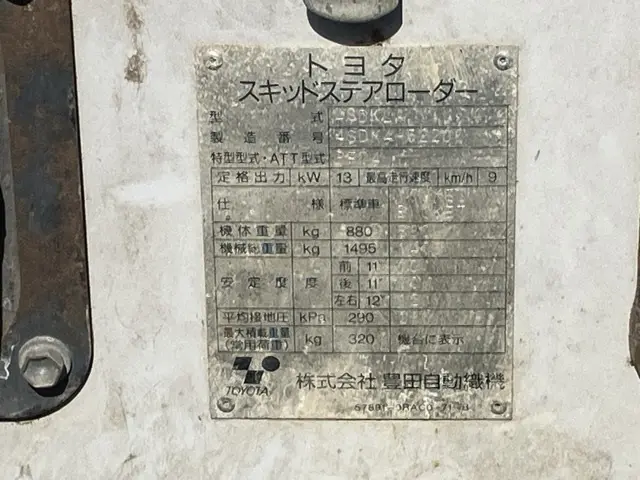 トヨタ
スキッドステアローダー
型式
製造番号
特型型式・ATT型式
定格出力 kW 13 最高走行速度 km/h 9
仕様 標準車
機体重量 kg 880
機械総重量 kg 1495
安定度 度 前 11
後 11
左右 12
平均接地圧 kPa 290
最大積載重量 (常用荷重) kg 320 機台に表示
TOYOTA 株式会社 豊田自動織機